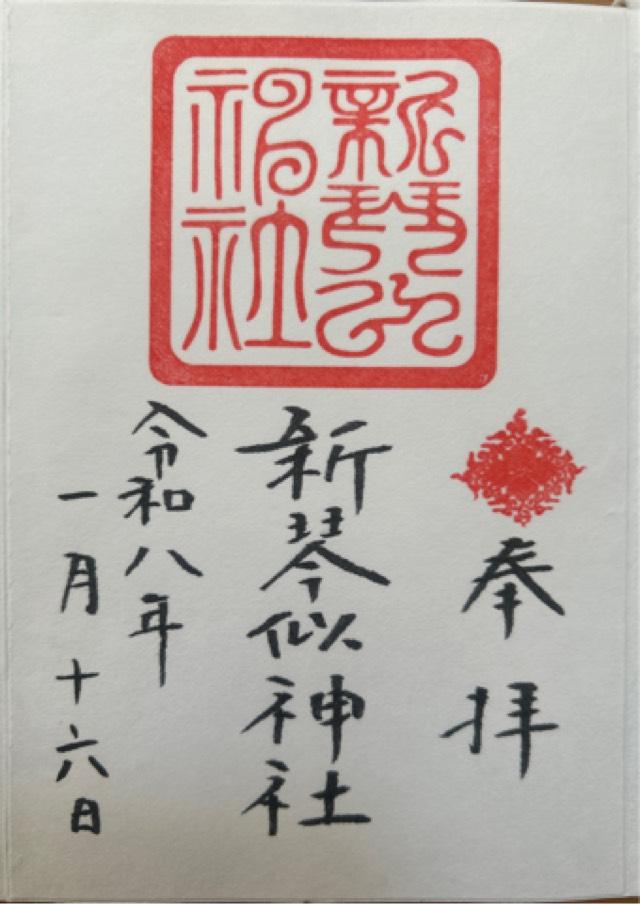 奉拝
新琴似神社
令和八年
一月十六日
新琴似
神社